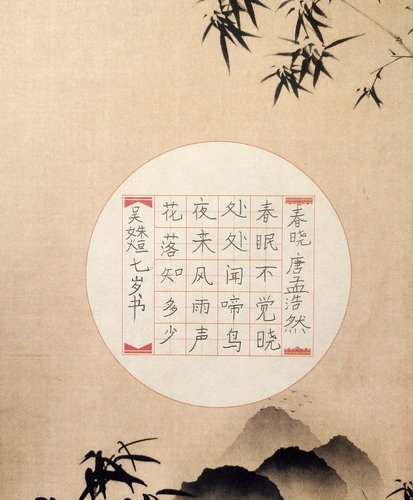 春晓 唐 孟浩然
春眠不觉晓
处处闻啼鸟
夜来风雨声
花落知多少
吴姝烜 七岁书